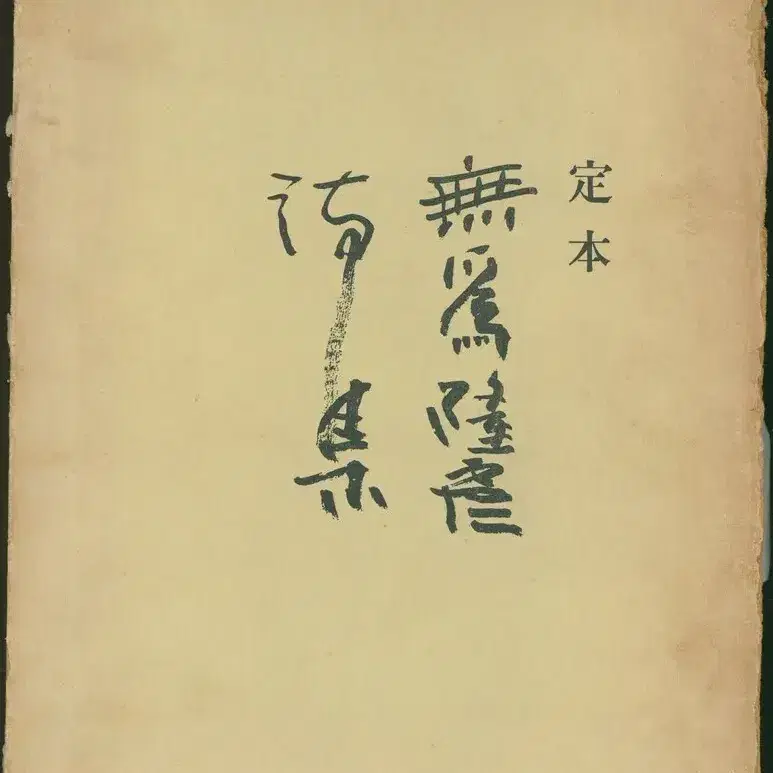 定本
無為隆彦
詩集